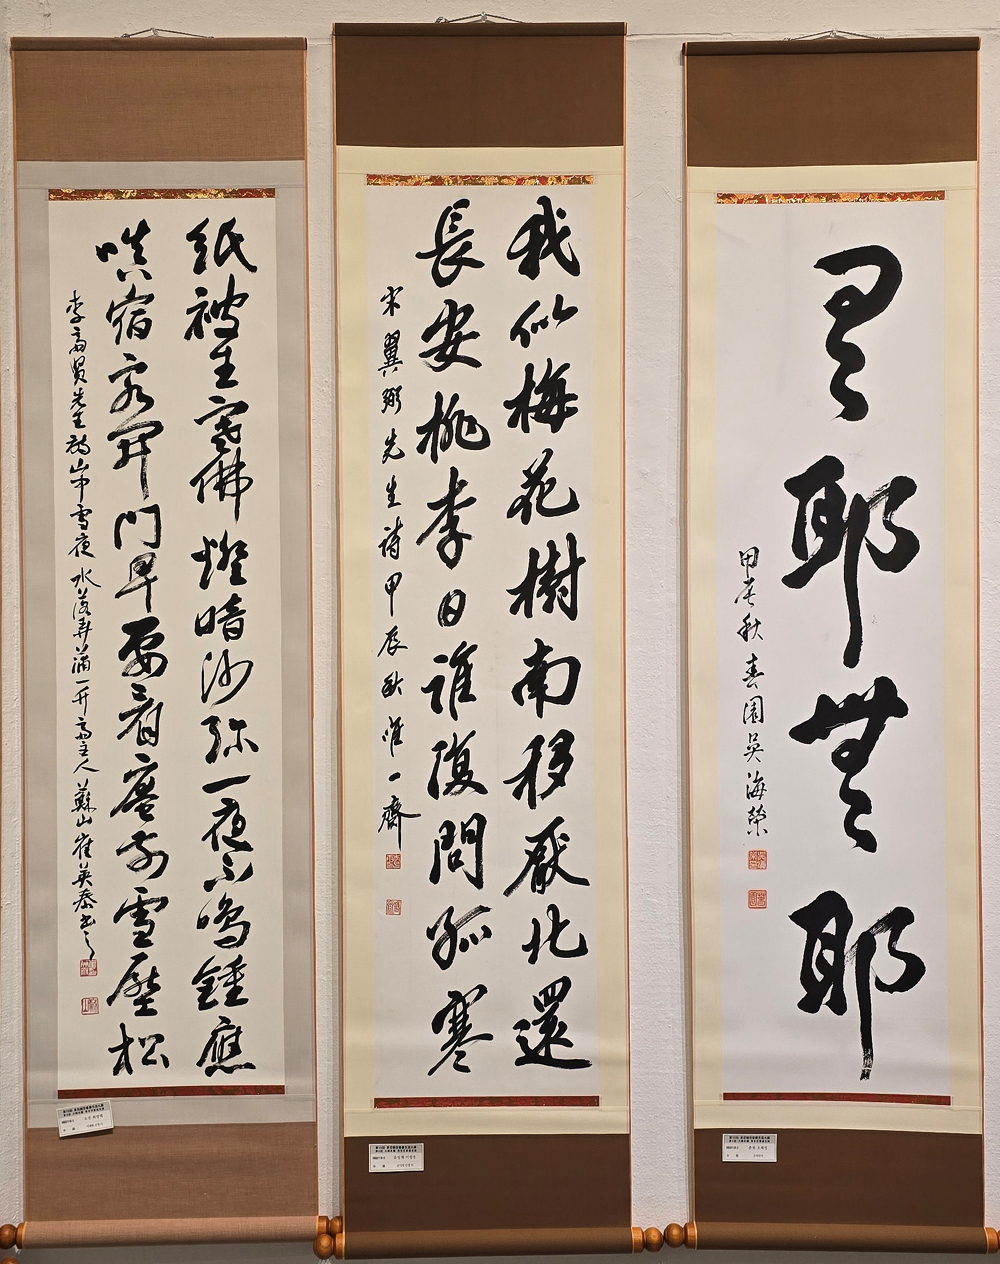 紙被生寒佛燈暗沙彌一夜不鳴鍾應
嗔宿客開門早要看庵前雪壓松
李齊賢先生詩山中雪夜 水落 主人 蘇山崔英泰書之
我似梅花樹南移厭北還
長安桃李日誰復問孤寒
宋翼弼先生詩甲辰秋 一齋
有耶無耶
甲辰秋 春園吳海榮